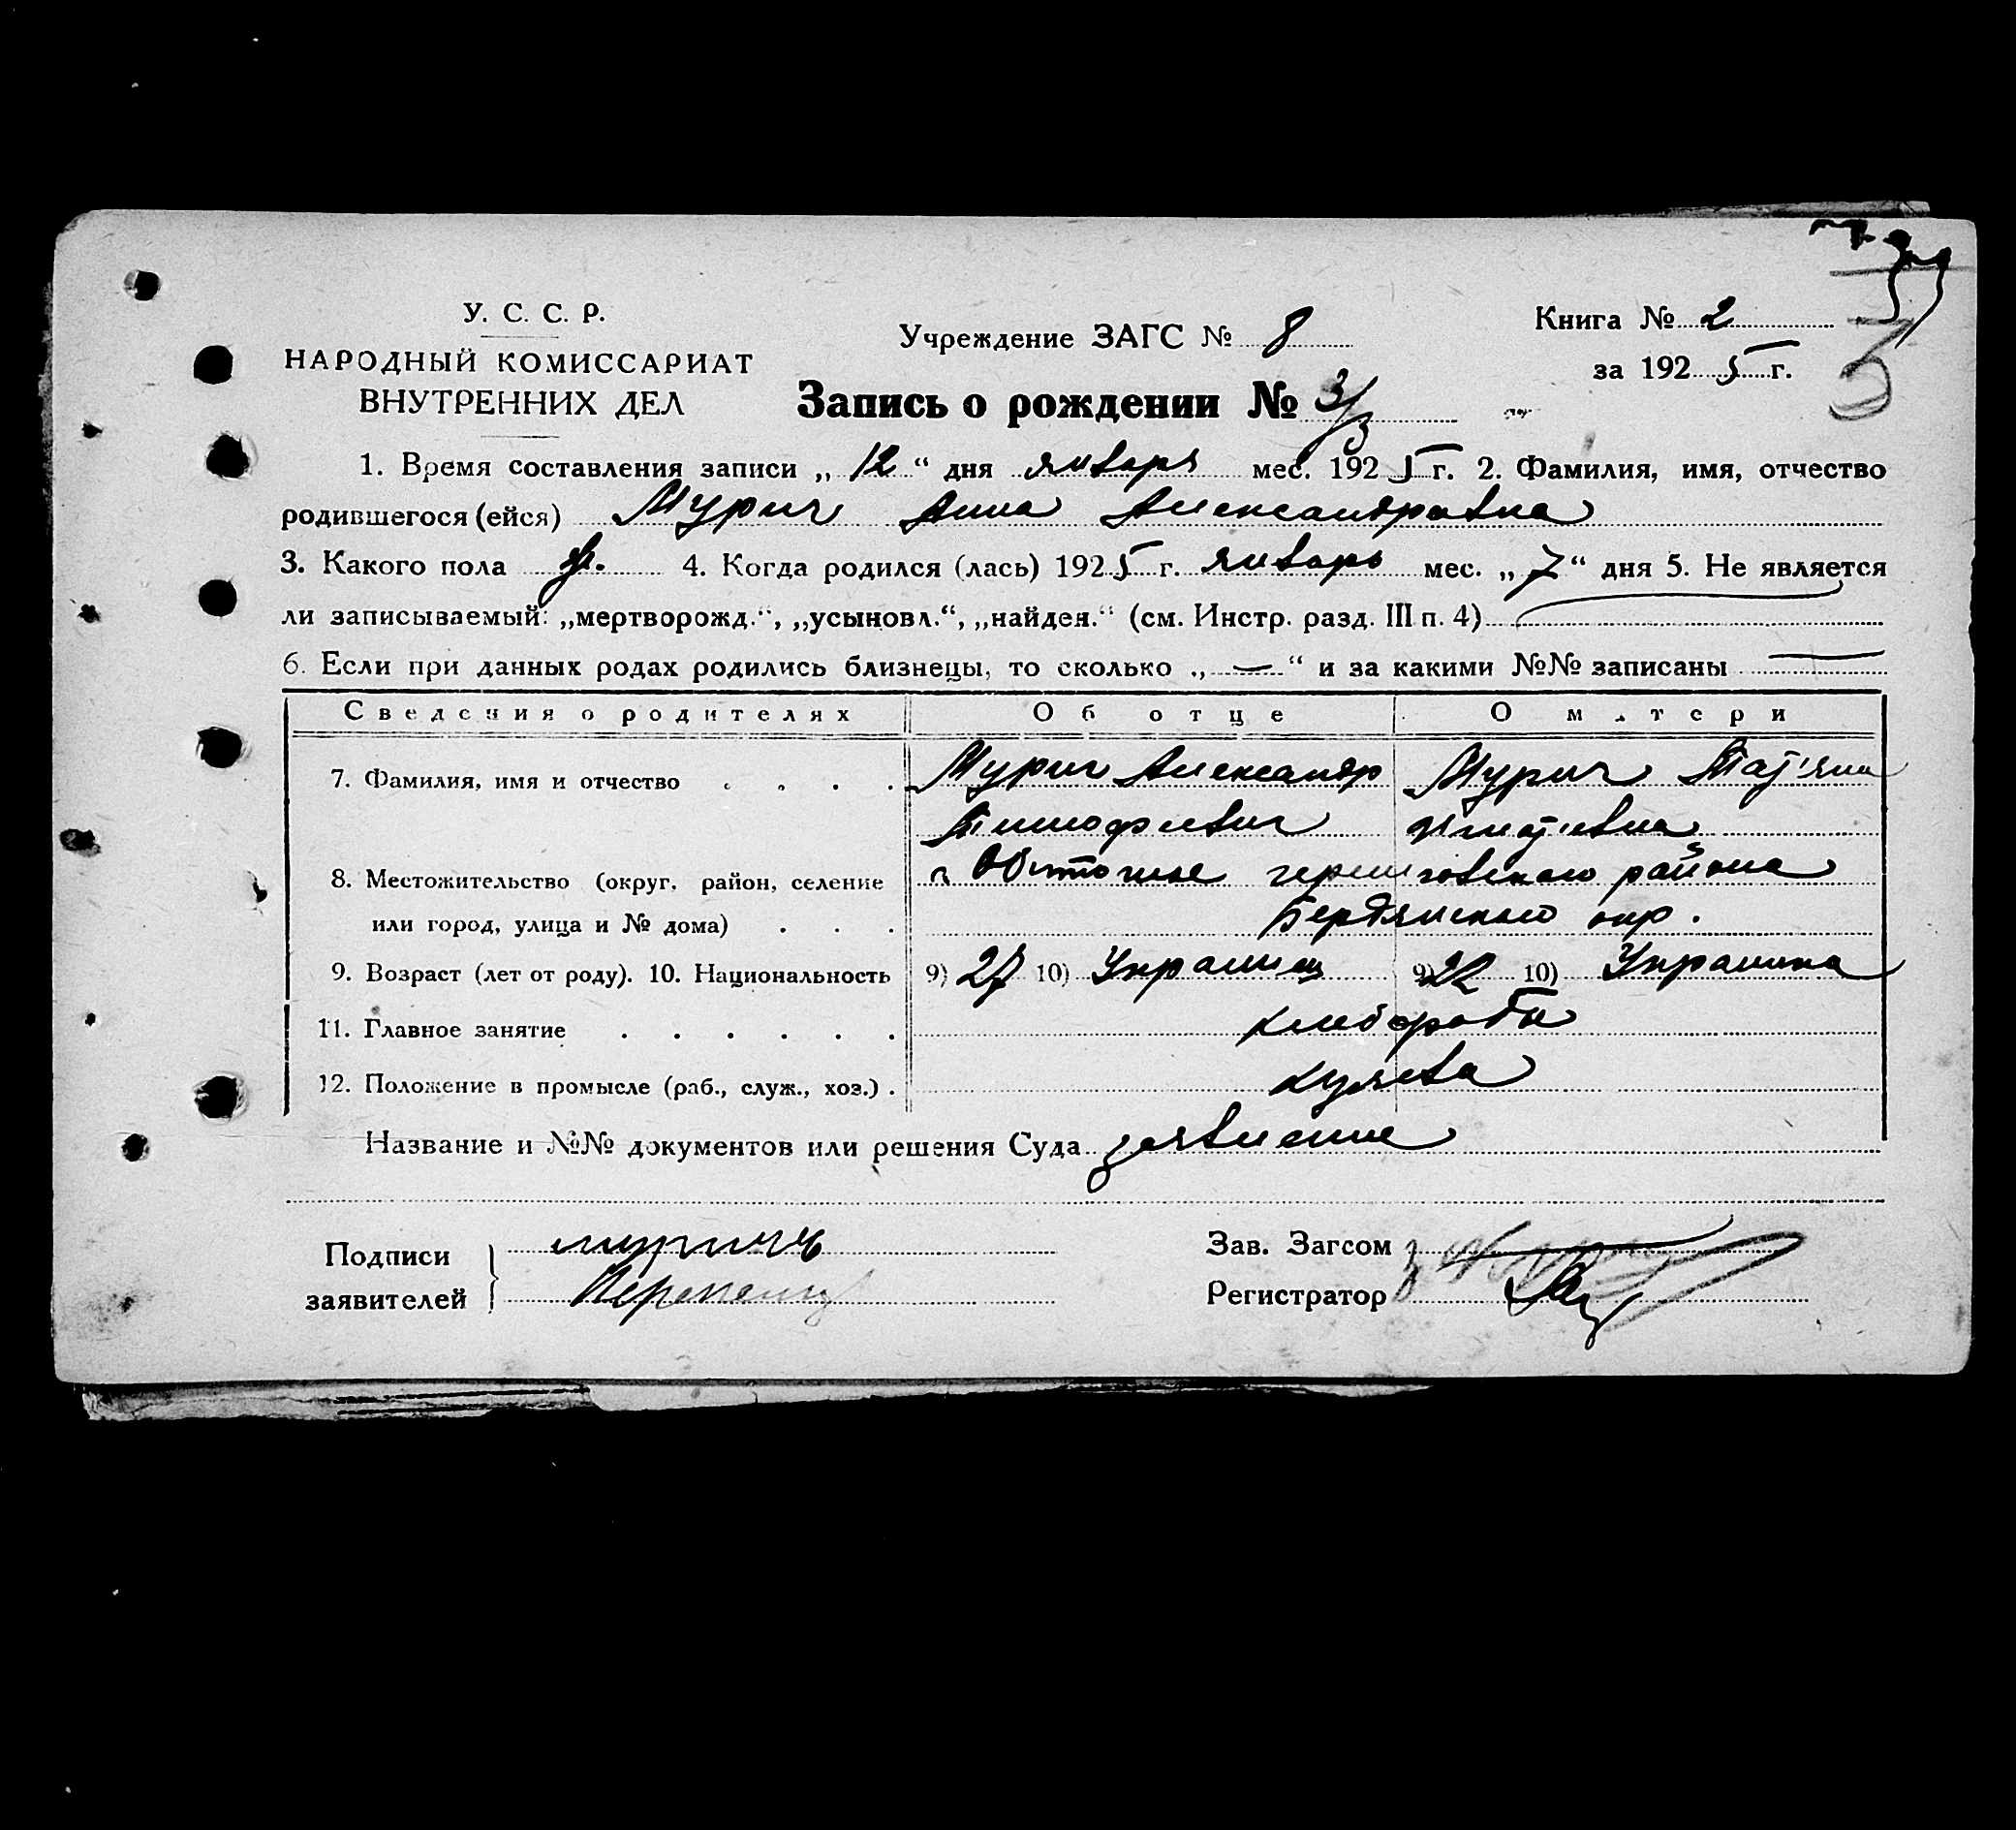 У. С. С. Р.
НАРОДНЫЙ КОМИССАРИАТ
ВНУТРЕННИХ ДЕЛ
Учреждение ЗАГС № 8
Книга № 2
за 1925 г.
3
Запись о рождении № 3/3
1. Время составления записи „12“ дня января мес. 1925 г. 2. Фамилия, имя, отчество
родившегося (ейся) Мурич Анна Александровна
3. Какого пола 4. Когда родился (лась) 1925 г. январь мес. „7“ дня 5. Не является
ли записываемый: „мертворожд.“, „усыновл.“, „найден.“ (см. Инстр. разд. III п. 4)
6. Если при данных родах родились близнецы, то сколько „—“ и за какими №№ записаны —
Сведения о родителях Об отце О матери
7. Фамилия, имя и отчество . . . . Мурич Александр Мурич Тат'яна
Тимофиевич Игнат'евна
8. Местожительство (округ, район, селение с Обиточное черниговского района
или город, улица и № дома) . . . Бердянского окр.
9. Возраст (лет от роду). 10. Национальность 9) 27 10) Украинец 9) 22 10) Украинка
11. Главное занятие . . . . . . хлебороби
12. Положение в промысле (раб., служ., хоз.) .
Название и №№ документов или решения Суда заявление
Подписи
заявителей
муричь
Зав. Загсом
Регистратор